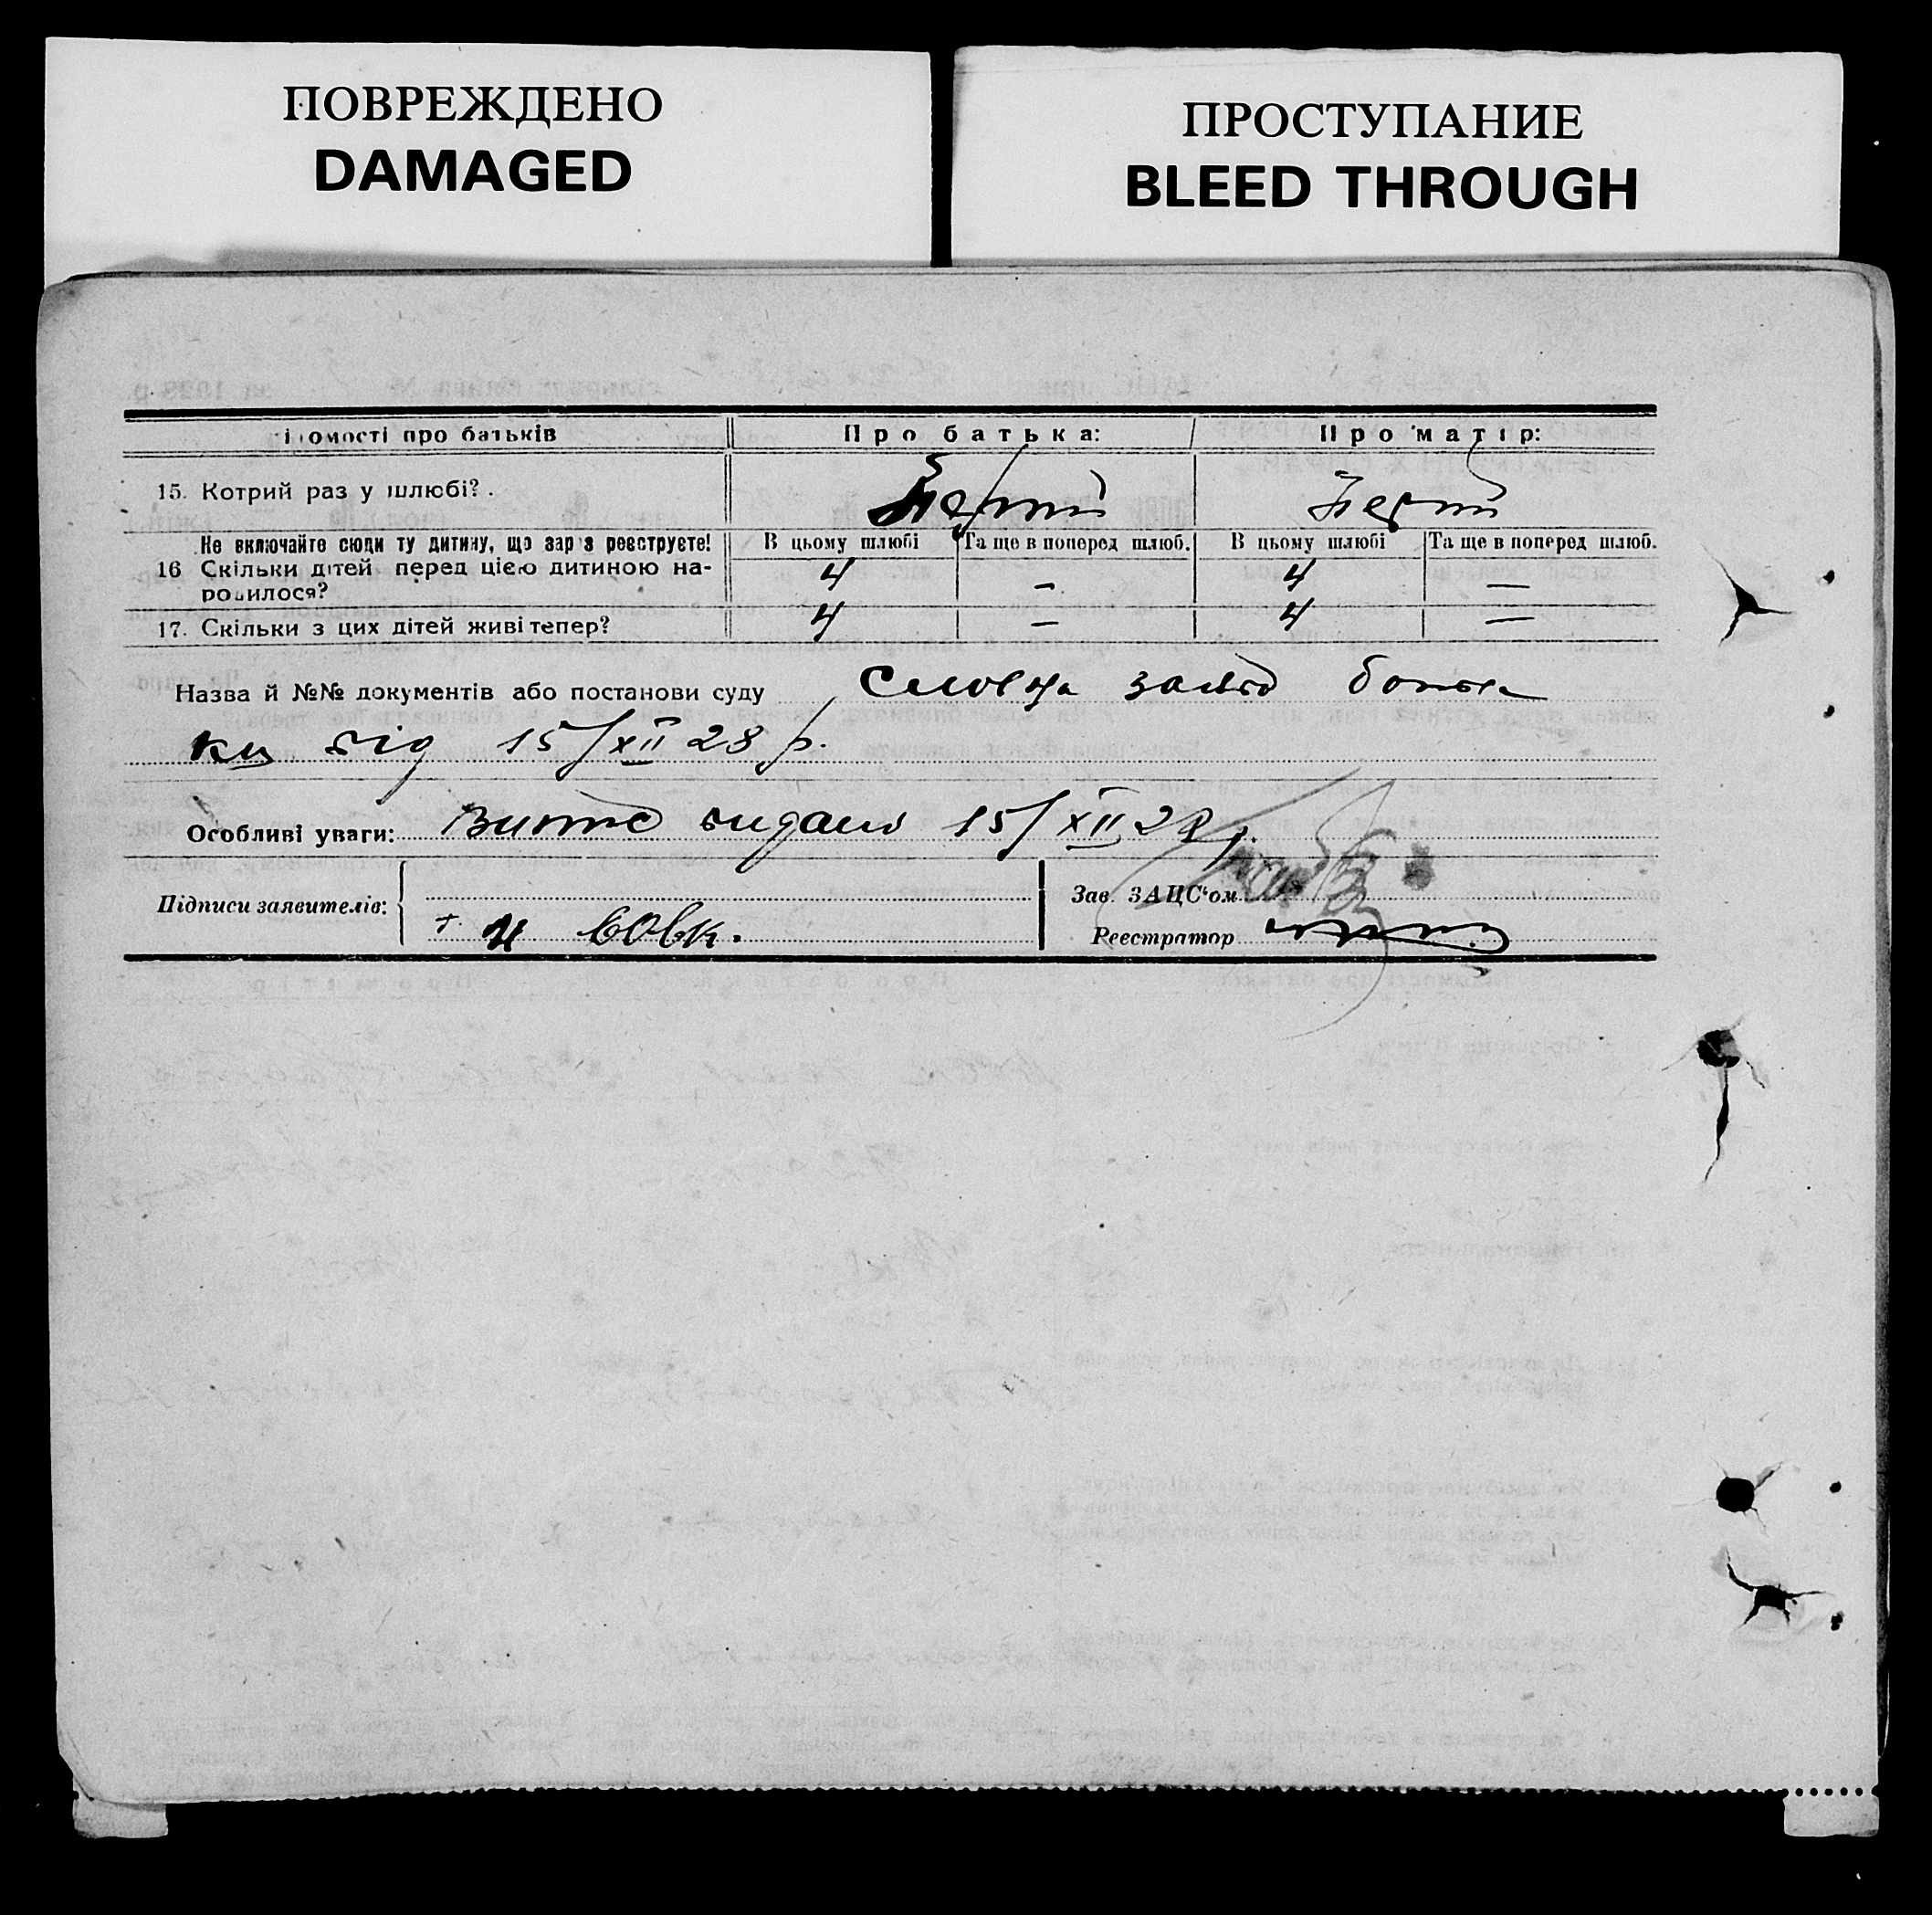 ПОВРЕЖДЕНО
DAMAGED
ПРОСТУПАНИЕ
BLEED THROUGH
ідомості про батьків Про батька: Про матір:
15. Котрий раз у шлюбі?. Перший Перший
Не включайте сюди ту дитину, що зараз реєструєте! В цьому шлюбі Та ще в поперед шлюб. В цьому шлюбі Та ще в поперед шлюб.
16 Скільки дітей перед цією дитиною на- 4 – 4 –
родилося?
17. Скільки з цих дітей живі тепер? 4 – 4 –
Назва й №№ документів або постанови суду Словна заява батька
від 15/XII 28 р.
Особливі уваги: видано 15/XII 28 р.
Підписи заявителів: Зав. ЗАЦС'ом
Вовк. Реєстратор